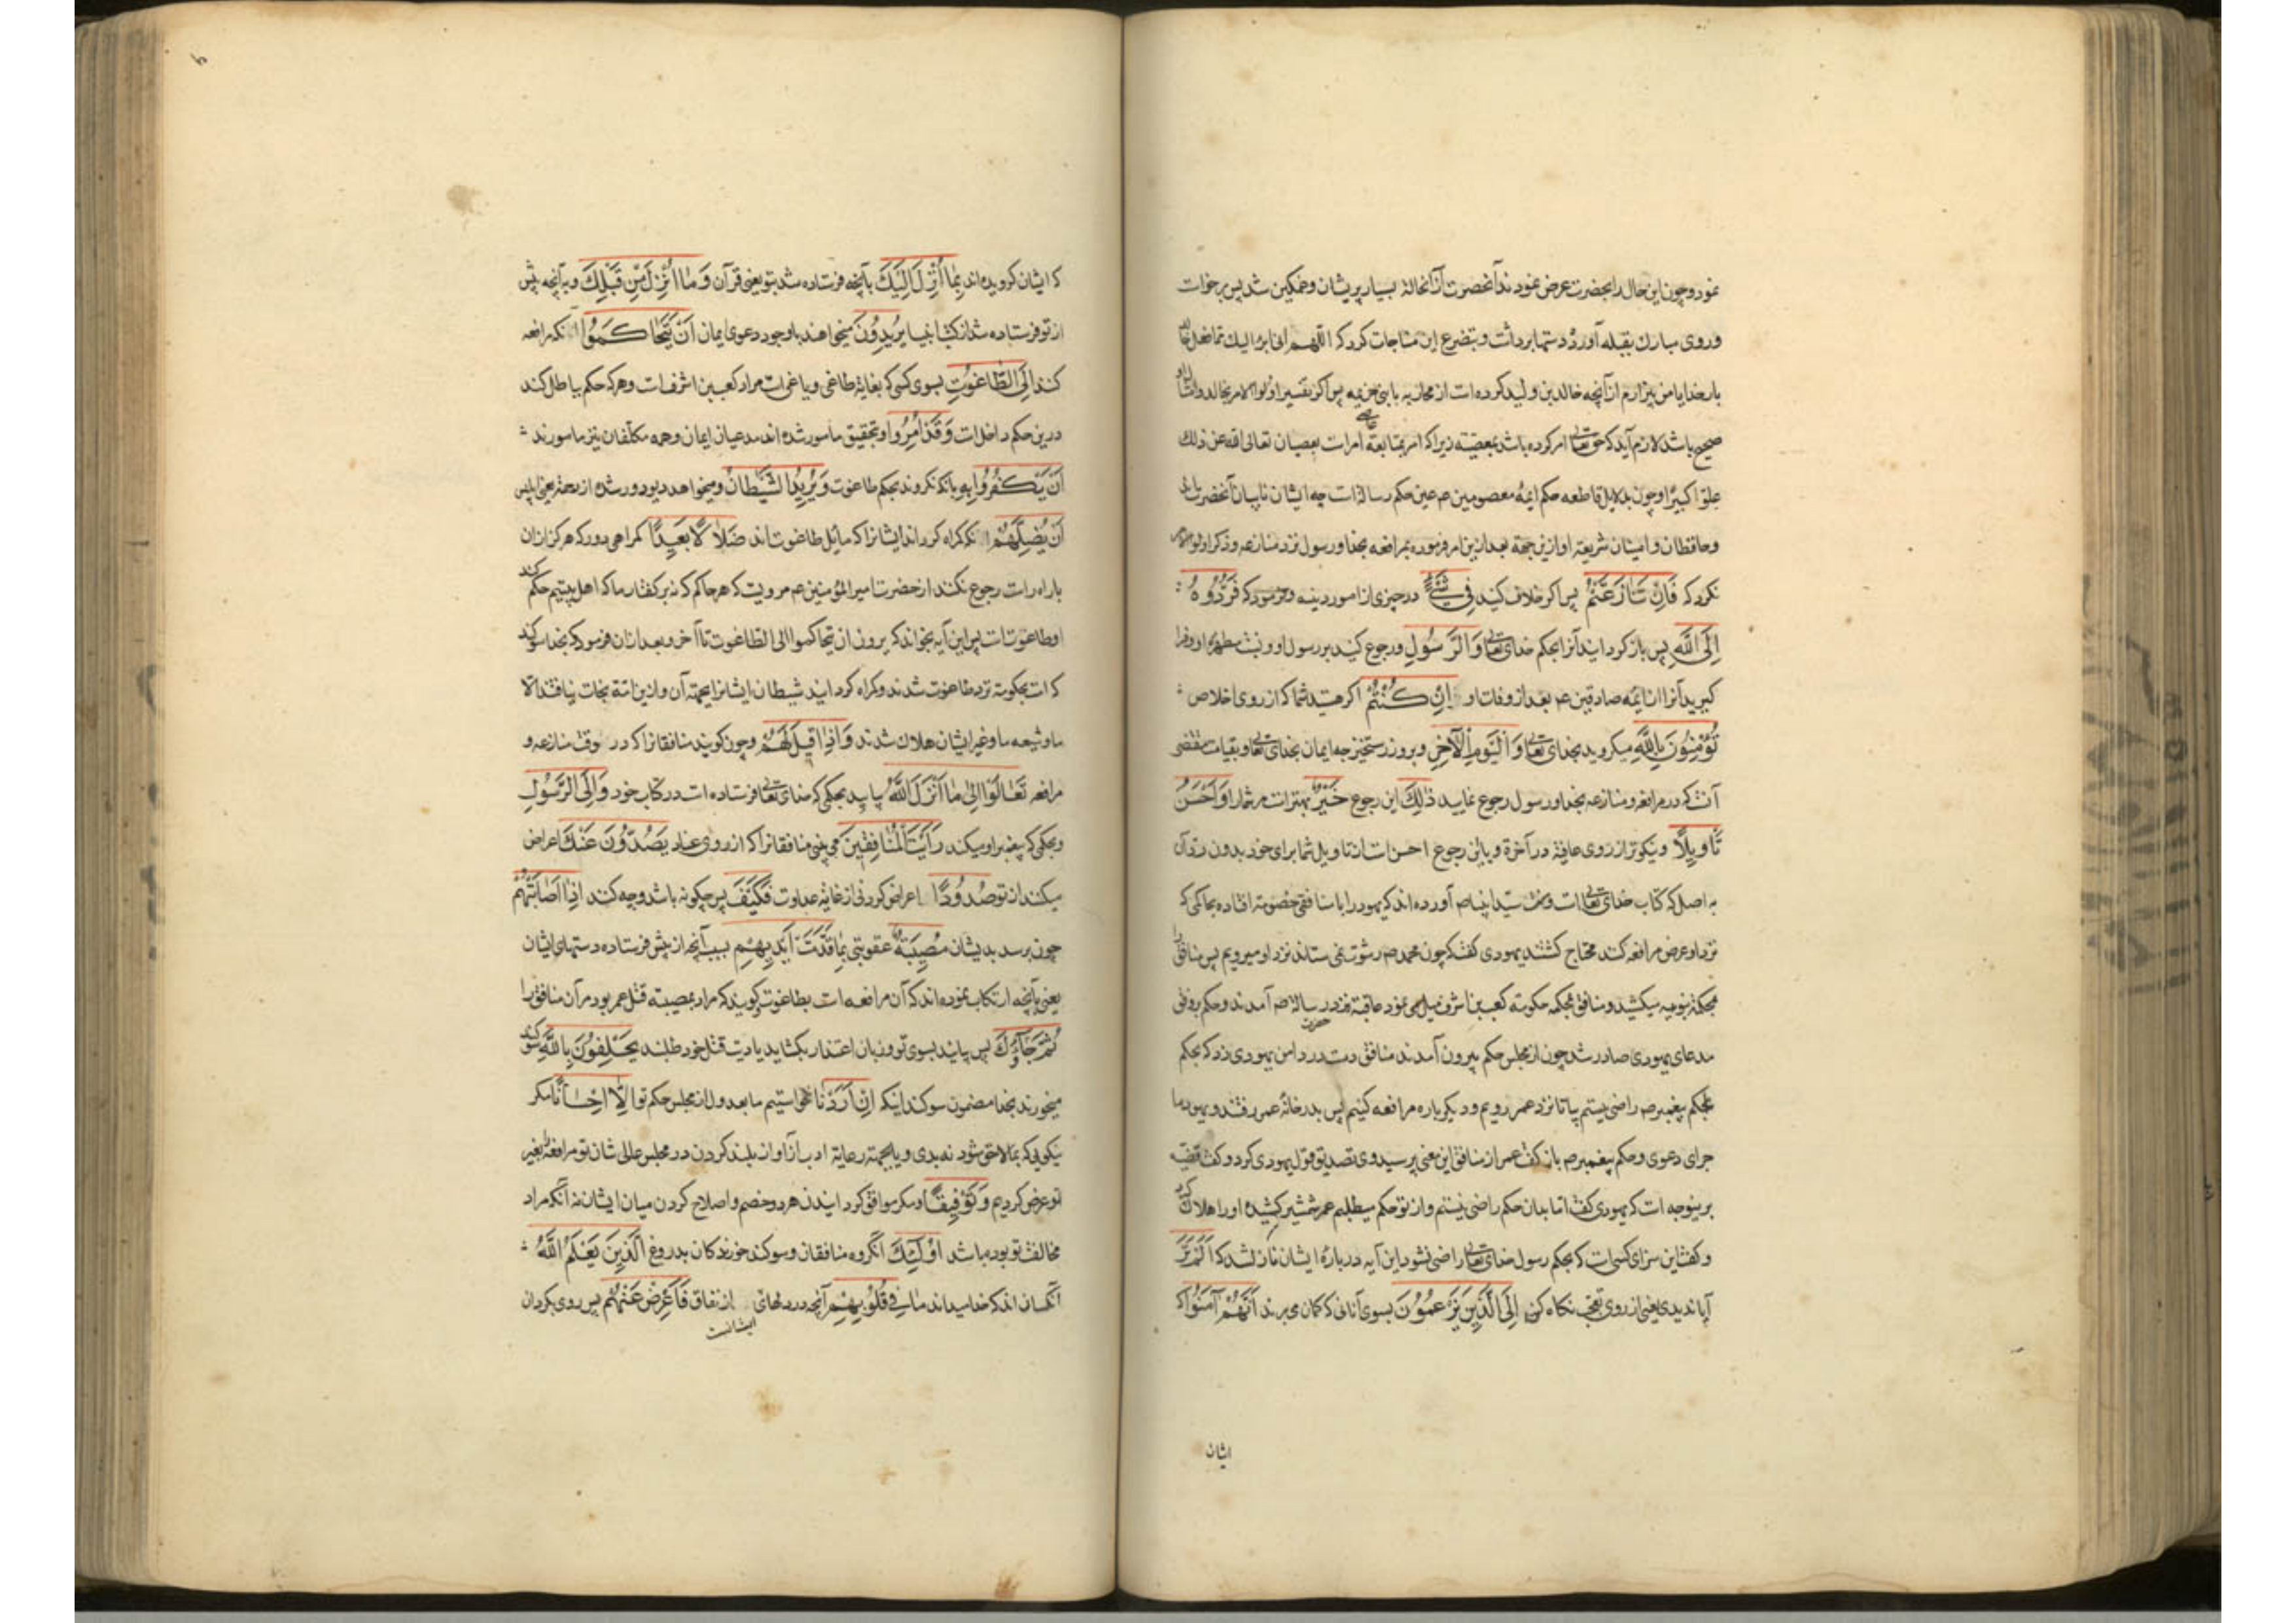 نمود و چون این حال را بحضرت عرض نمودند آنحضرت از آنحالة بسیار پریشان و غمکین شد پس برخوات
و روی مبارك بقبله آورد و دستها برداشت و بتضرع این مناجات کرد که اللهم انی ابرء الیك مما فعل خالد
بار خدایا من بیزارم از آنچه خالد بن ولید کرده است از محاربه با بنی خزیمه پس اکر تفسیر اولوا الامر بخالد و امثال او
صحیح باشد لازم آید که حق تعالی امر کرده باشد بمعصیته زیرا که امر بمتابعة عاصی امرات بعصیان تعالی الله عن ذلك
علوا کبیرا و چون بدلایل قاطعه حکم ایمهٔ معصومین عم عین حکم رسالة ات چه ایشان نایبان آنحضرت
و حافظان و امینان شریعة او ازین جهة بعد ازین امر فرموده بمرافعه بخدا و رسول نزد منازعه و ذکر اولوا الامر
نکرد که فَاِنْ تَنازَعْتُمْ پس اکر خلاف کنید فِی شَیْءٍ در چیزی از امور دینیه و فرمود که فَرُدُّوهُ
اِلَی اللّٰهِ پس باز کردانید آنرا بحکم خدای تعالی وَالرَّسُولِ و رجوع کنید برسول او و بسنت مطهرهٔ او و فرا
کیرید آنرا از ایمه صادقین عم بعد از وفات او اِنْ کُنْتُمْ اکر هستید شما که از روی اخلاص
تُؤْمِنُونَ بِاللّٰهِ میکروید بخدای تعالی وَالْیَوْمِ الْآخِرِ و بروز رستخیز چه ایمان بخدای تعالی و بقیامت مقتضی
آنت که در مرافعه و منازعه بخدا و رسول رجوع نمایید ذٰلِكَ این رجوع خَیْرٌ بهترات مر شما را وَاَحْسَنُ
تَأْوِیلًا و نیکوتر از روی عاقبة در آخرة و یا این رجوع احسن ات از تاویل شما برای خود بدون رد آن
به اصل که کتاب خدای تعالی ات و سنت سید انبیا صم آورده اند که یهود را با منافقی خصومة افتاده بحاکمی که
نزد او عرض مرافعه کنند محتاج کشتند یهودی کفت که چون محمد صم رشوت نمی ستاند نزد او میرویم پس منافق را
بمحکمهٔ نبویه میکشید و منافق بمحکمه حکومة کعب بن اشرف میل می نمود عاقبة نزد حضرت رسالة صم آمدند و حکم بر وفق
مدعای یهودی صادر شد چون از مجلس حکم بیرون آمدند منافق دست در دامن یهودی زد که بحکم
بحکم پیغمبر صم راضی نیستم بیا تا نزد عمر رویم و دیکر باره مرافعه کنیم پس بدر خانهٔ عمر رفتند و یهود ما
جرای دعوی و حکم پیغمبر صم باز کفت عمر از منافق این معنی پرسید وی تصدیق قول یهودی کرد و کفت قضیه
برینوجه ات که یهودی کفت اما بدان حکم راضی نیستم و از تو حکم میطلبم عمر شمشیر کشیده او را هلاك کرد
و کفت این سزای کسی ات که بحکم رسول خدای تعالی راضی نشود این آیه در بارهٔ ایشان نازل شد که اَلَمْ تَرَ
آیا ندیدی یعنی از روی تعجب نکاه کن اِلَی الَّذِینَ یَزْعُمُونَ بسوی آنانی که کمان می برند اَنَّهُمْ آمَنُوا که
ایشان
که ایشان کرویده اند بِمٰا اُنْزِلَ اِلَیْكَ بآنچه فرستاده شد بتو یعنی قرآن وَمٰا اُنْزِلَ مِنْ قَبْلِكَ و به آنچه پیش
از تو فرستاده شد از کتب انبیا یُرِیدُونَ میخواهند با وجود دعوی ایمان اَنْ یَتَحٰاکَمُوا آنکه مرافعه
کنند اِلَی الطّٰاغُوتِ بسوی کسی که بغایة طاغی و یاغی ات مراد کعب بن اشرف ات و هر که حکم بباطل کند
درین حکم داخل ات وَقَدْ اُمِرُوا و بتحقیق مامور شده اند مدعیان ایمان و همه مکلفان نیز مامورند
اَنْ یَکْفُرُوا بِهِ بآنکه نکروند بحکم طاغوت وَیُرِیدُ الشَّیْطٰانُ و میخواهد دیو دور شده از رحمة یعنی ابلیس
اَنْ یُضِلَّهُمْ آنکه کمراه کرداند ایشانرا که مایل طاغوت اند ضَلٰالًا بَعِیدًا کمراهی دور که هرکز از ان
باراه رات رجوع نکنند از حضرت امیر المؤمنین عم مرویت که هر حاکم که نه بر کفتار ما که اهل بیتیم حکم کند
او طاغوت ات پس این آیه بخواند که یریدون ان یتحاکموا الی الطاغوت تا آخر و بعد از ان فرمود که بخدا سوکند
که ات بحکومة نزد طاغوت شدند و کمراه کردانید شیطان ایشانرا بجهة آن و ازین امة نجات نیافتند الا
ما و شیعه ما و غیر ایشان هلاك شدند وَاِذٰا قِیلَ لَهُمْ و چون کویند منافقانرا که در وقت منازعه و
مرافعه تَعٰالَوْا اِلیٰ مٰا اَنْزَلَ اللّٰهُ بیایید بحکمی که خدای تعالی فرستاده ات در کتاب خود وَاِلَی الرَّسُولِ
و بحکمی که پیغمبر او میکند رَاَیْتَ الْمُنٰافِقِینَ می بینی منافقانرا که از روی عناد یَصُدُّونَ عَنْكَ اعراض
میکنند از تو صُدُودًا اعراض کردنی از غایة عداوت فَکَیْفَ پس چکونه باشد و چه کنند اِذٰا اَصٰابَتْهُمْ
چون برسد بدیشان مُصِیبَةٌ عقوبتی بِمٰا قَدَّمَتْ اَیْدِیهِمْ بسبب آنچه از پیش فرستاده دستهای ایشان
یعنی بآنچه ارتکاب نموده اند که آن مرافعه ات بطاغوت کویند که مراد بمصیبة قتل عمر بود مر آن منافق را
ثُمَّ جٰآؤُكَ پس بیایند بسوی تو و زبان اعتذار بکشایند یا دیت قتل خود طلبند یَحْلِفُونَ بِاللّٰهِ سوکند
میخورند بخدا مضمون سوکند اینکه اِنْ اَرَدْنٰا نخواستیم ما بعدول از مجلس حکم تو اِلّٰا اِحْسٰانًا مکر
نیکویی که بما لاحق شود نه بدی و یا بجهة رعایة ادب از آواز بلند کردن در مجلس عالی شان تو مرافعه بغیر
تو عرض کردیم وَتَوْفِیقًا و مکر موافق کردانیدن هر دو خصم و اصلاح کردن میان ایشان نه آنکه مراد
مخالفت تو بوده باشد اُولٰئِكَ آنکروه منافقان و سوکند خورندکان بدروغ الَّذِینَ یَعْلَمُ اللّٰهُ
آنکسان اند که خدا میداند مٰا فِی قُلُوبِهِمْ آنچه در دلهای ایشانست از نفاق فَاَعْرِضْ عَنْهُمْ پس روی بکردان